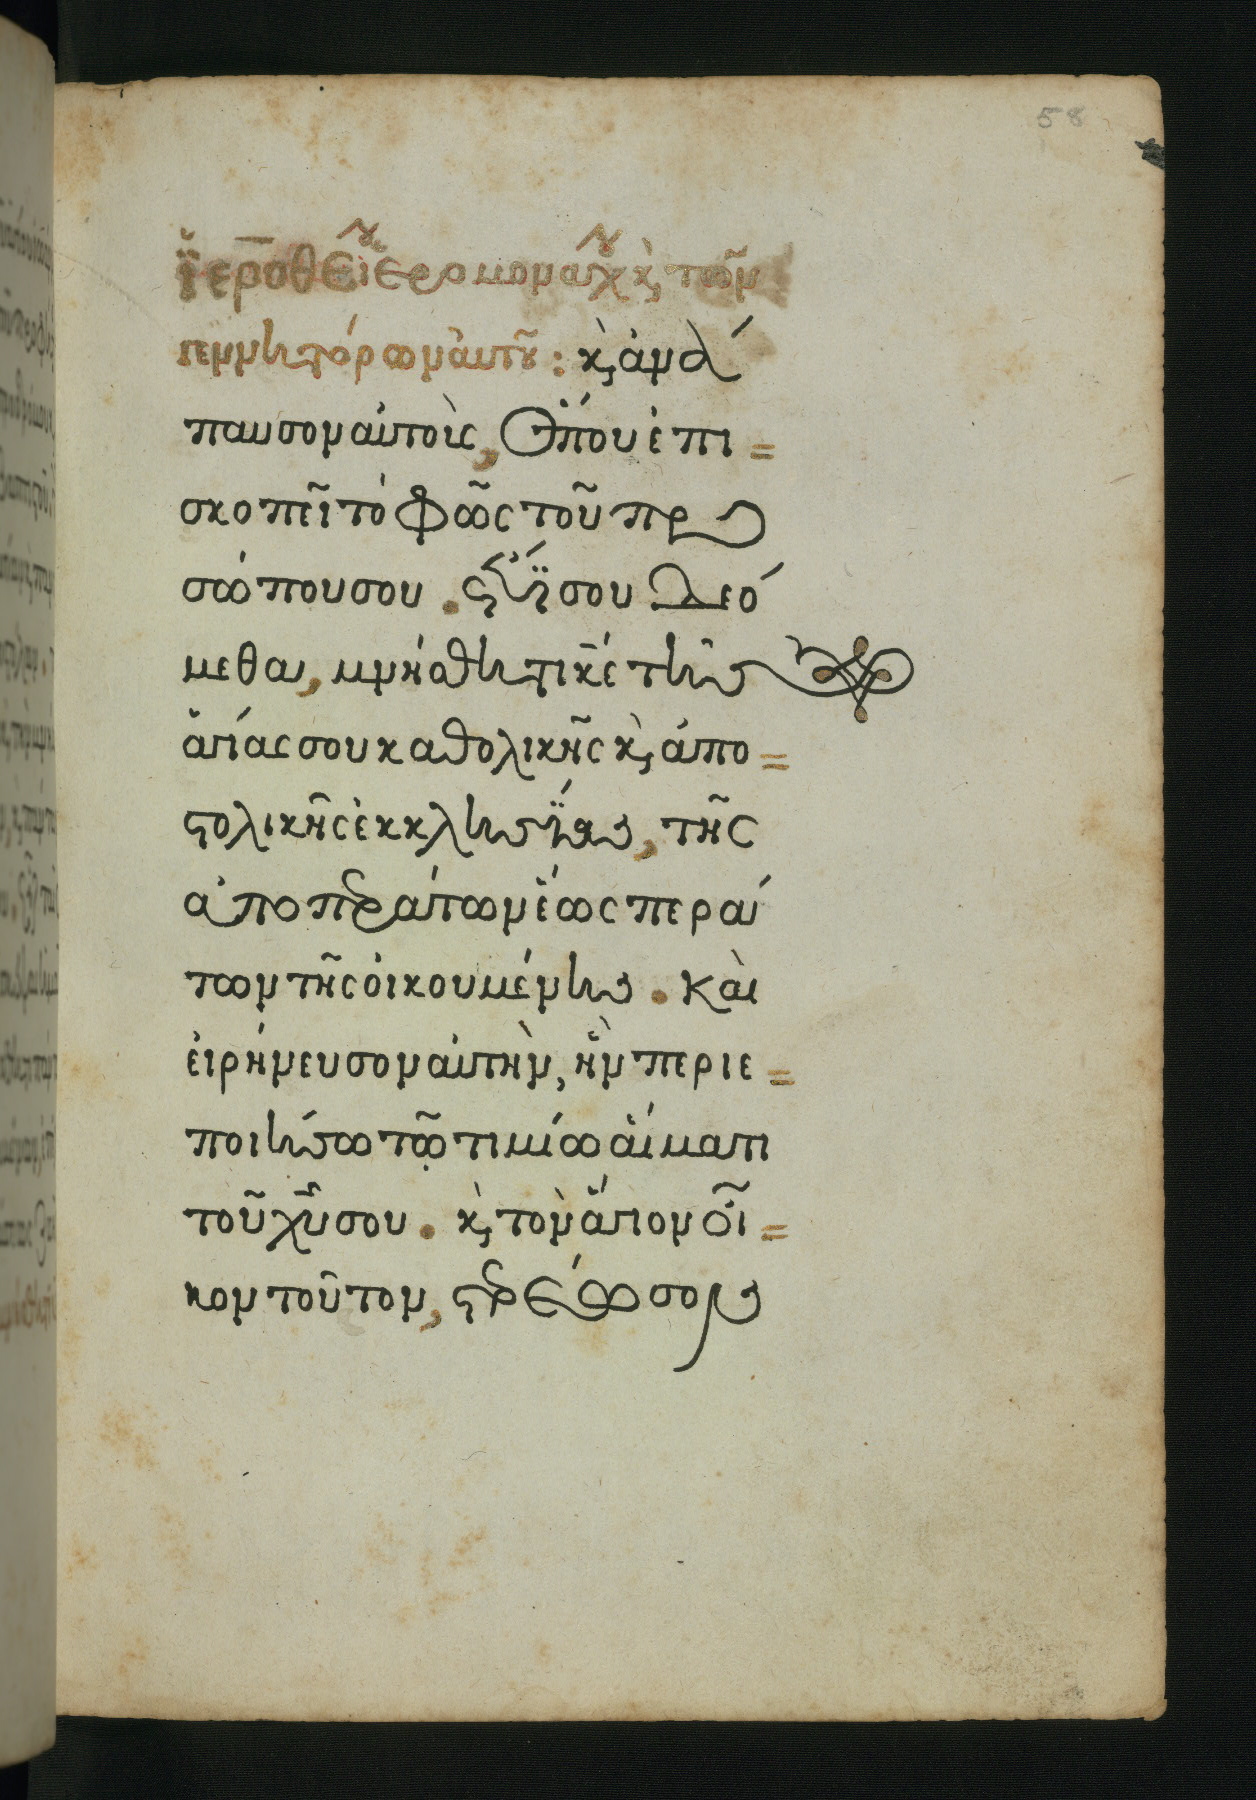 58
ἱεροθέου ἱερομονάχου κ, τῶν
γεννητόρων αὐτοῦ : κ, ἀνά
παυσον αὐτοὺς, Ὅπου ἐπι=
σκοπεῖ τὸ φῶς τοῦ προ
σώπου σου . ἔτι σου δεό
μεθα, μνήσθητι κε τῆς
ἁγίας σου καθολικῆς κ, ἀπο=
στολικῆς ἐκκλησίας, τῆς
ἀπὸ περάτων ἕως περά
των τῆς οἰκουμένης . Καὶ
εἰρήνευσον αὐτὴν, ἣν περιε=
ποιήσω τῷ τιμίῳ αἵματι
τοῦ χυ σου . κ, τὸν ἅγιον οἶ=
κον τοῦτον, στερέωσον